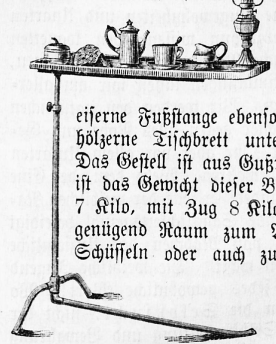 eiserne Fußstange ebenso
hölzerne Tischbrett unte
Das Gestell ist aus Guß
ist das Gewicht dieser B
7 Kilo, mit Zug 8 Kilo
genügend Raum zum
Schüsseln oder auch zu